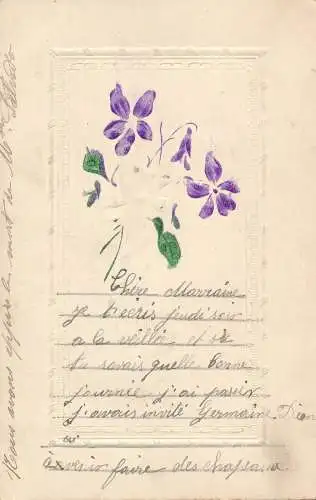 Chère Marraine
je t'écris jeudi soir
a la veillée et si
tu savais quelle bonne
journée j'ai passer
j'avais invité Germaine
à venir faire des chapeaux
Nous avons appris la mort de Mr